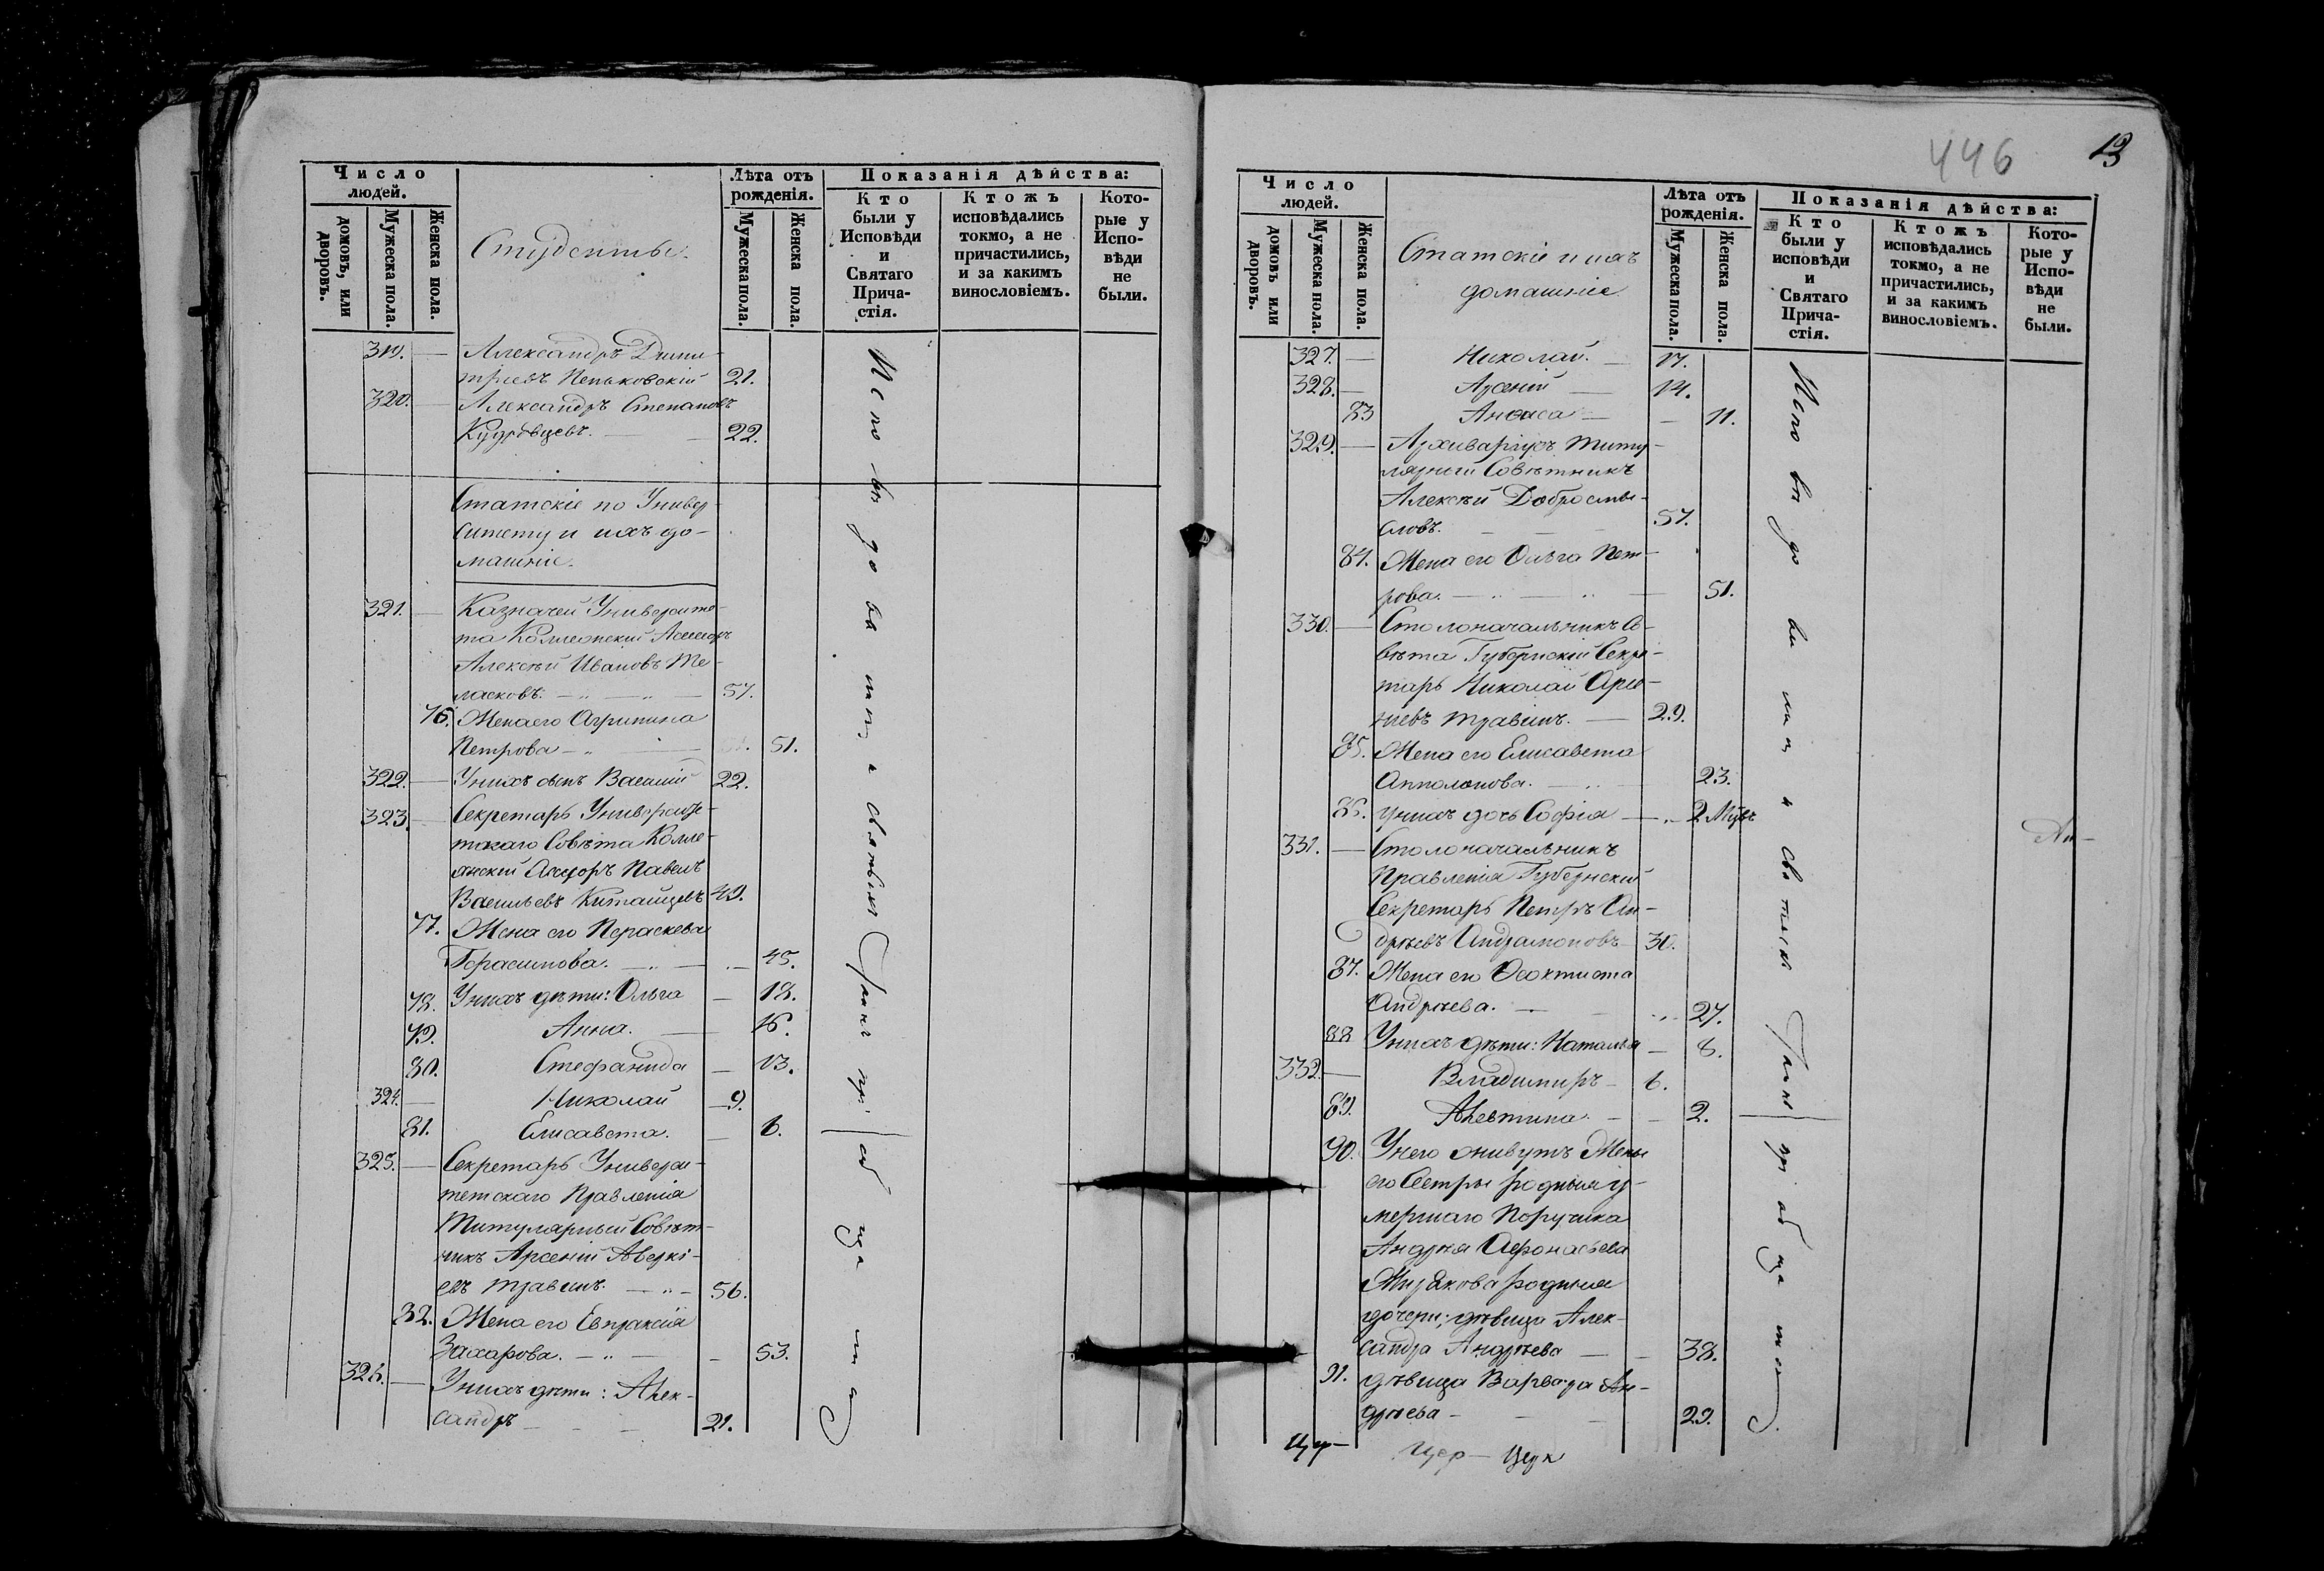 Число людей.
домовъ, или дворовъ.
Мужеска пола.
Женска пола.
Студенты.
Лѣта отъ рожденія.
Мужеска пола.
Женска пола.
Показанія дѣйства:
Кто были у Исповѣди и Святаго Прича-стія.
Ктожъ исповѣдались токмо, а не причастились, и за какимъ винословіемъ.
Кото-рые у Испо-вѣди не были.
319. — Александръ Дими-
тріевъ Пеньковскій 21.
320. — Александръ Степановъ
Кудрявцевъ. — 22.
Статскіе по Универ-
ситету и ихъ до-
машніе.
321. — Казначей Университе-
та Коллежскій Асессоръ
Алексѣй Ивановъ
ласковъ. — 57.
76. Жена его Агрипина
Петрова — 51.
322. — У нихъ сынъ Василій 22.
323. — Секретарь Университ-
тскаго Совѣта Колле-
жскій Асессоръ Павелъ
Васильевъ Китайцевъ 49.
77. Жена его Параскева
Герасимова. — 45.
78. У нихъ дѣти: Ольга — 18.
79. Анна. — 16.
80. Стефанида — 13.
324. — Николай — 9.
81. Елисавета. — 6.
325. — Секретарь Универси-
тетскаго Правленія
Титулярный Совѣт-
никъ Арсеній Аверкі-
евъ Травинъ. — 56.
82. Жена его Евпраксія
Захарова. — 53.
326. — У нихъ дѣти: Алек-
сандръ — 21.
Исповѣдовались и святыхъ Таинъ пріобщались
446
13
Число людей.
домовъ или дворовъ.
Мужеска пола.
Женска пола.
Статскіе и ихъ
домашніе
Лѣта отъ рожденія.
Мужеска пола.
Женска пола.
Показанія дѣйства:
Кто были у исповѣди и Святаго Прича-стія.
Ктожъ исповѣдались токмо, а не причастились, и за какимъ винословіемъ.
Кото-рые у Испо-вѣди не были.
327. — Николай. — 17.
328. — Арсеній — 14.
83 Анфиса — 11.
329. — Архиваріусъ Титу-
лярный Совѣтникъ
Алексѣй Добросмы-
словъ. — 57.
84. Жена его Ольга Пет-
рова. — 51.
330. — Столоначальникъ Со-
вѣта Губернскій Секре-
тарь Николай Арсе-
ніевъ Травинъ. — 29.
85. Жена его Елисавета
Апполонова. — 23.
86. У нихъ дочь Софія — 2 Мѣс
331. — Столоначальникъ
Правленія Губернскій
Секретарь Петръ Ан-
дреевъ — 30.
87. Жена его Феоктиста
Андреева. — 27.
88 У нихъ дѣти: Наталья — 8.
332. — Владимиръ — 6.
89. Алевтина. — 2.
90. У него живутъ Жены
его Сестры родныя у-
мершаго Поручика
Андрея Афонасьева
родныя
дочери; дѣвица Алек-
сандра Андреева — 38.
91. дѣвица Варвара Ан-
дреева — 29.
Исповѣдовались и святыхъ Таинъ пріобщались.
Ан-
Цер- Цер- Церк